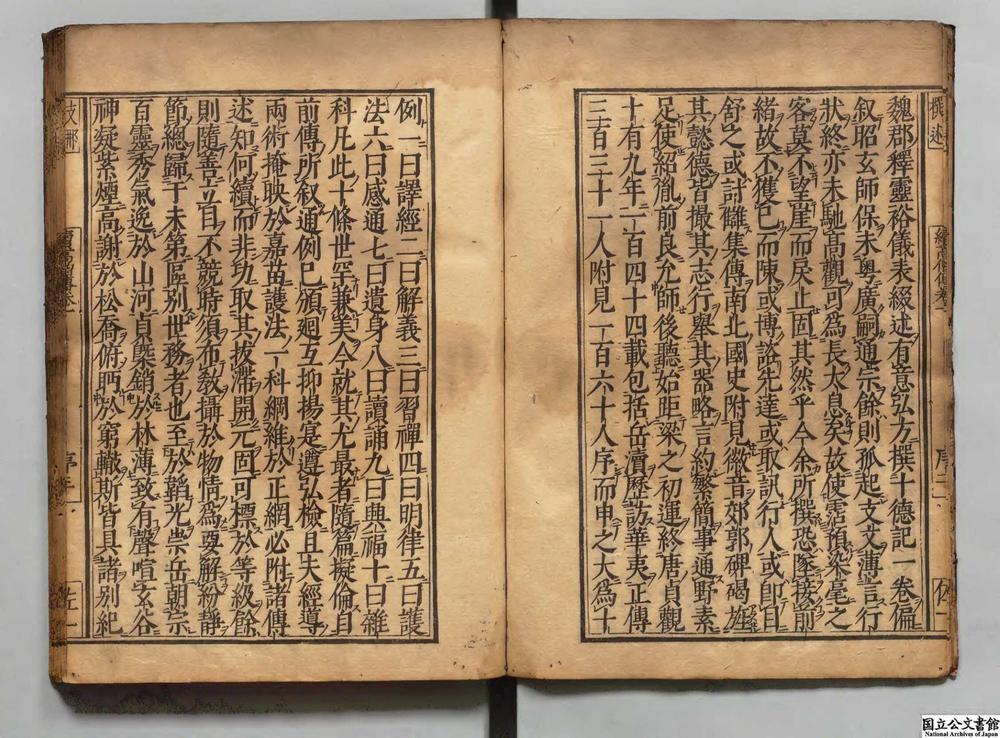 魏郡釋靈裕儀表綴述有意弘方撰十德記一卷偏
叙昭玄師保未粤廣嗣通宗餘則孤起支文薄言行
狀終亦未馳高觀可為長太息矣故使霑預染毫之
客莫不望崖而戾止固其然乎今余所撰恐墜接前
緒故不獲已而陳或博諮先達或取訊行人或即目
舒之或討讎集傳南北國史附見徽音郊郭碑碣旌
其懿德皆撮其志行舉其器略言約繁簡事通野素
足使紹胤前良允師後聽始距梁之初運終唐貞觀
十有九年一百四十四載包括岳瀆歷訪華夷正傳
三百三十一人附見一百六十人序而申之大為十
例一曰譯經二曰解義三曰習禪四曰明律五曰護
法六曰感通七曰遺身八曰讀誦九曰興福十曰雜
科凡此十條世罕兼美今就其尤最者隨篇擬倫自
前傳所叙通例已頒迴互抑揚寔遵弘檢且夫經導
兩術掩映於嘉苗護法一科綱維於正網必附諸傳
述知何續而非功取其拔滯開元固可標於等級餘
則隨善立目不競時須布教攝於物情為要解紛靜
節總歸于未第區別世務者也至於韜光崇岳朝宗
百靈秀氣逸於山河貞槩銷於林薄致有聲喧玄谷
神凝紫煙高謝於松喬俯眄於窮轍斯皆具諸別紀
國立公文書館
National Archives of Japan